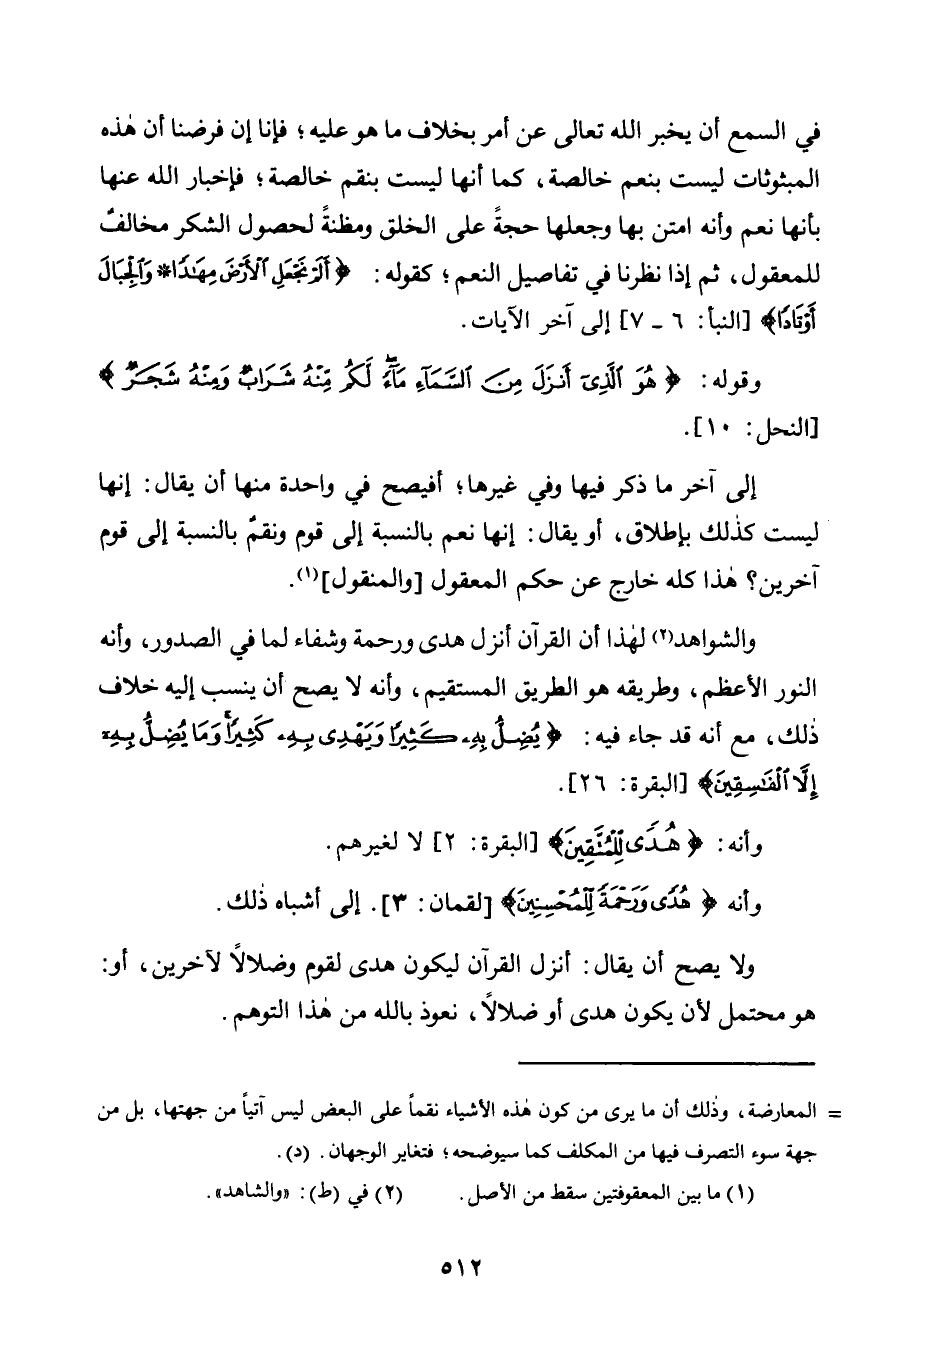 في السمع أن يخبر الله تعالى عن أمر بخلاف ما هو عليه؛ فإنا إن فرضنا أن هٰذه
المبثوثات ليست بنعم خالصة، كما أنها ليست بنقم خالصة؛ فإخبار الله عنها
بأنها نعم وأنه امتن بها وجعلها حجةً على الخلق ومظنةً لحصول الشكر مخالفٌ
للمعقول، ثم إذا نظرنا في تفاصيل النعم؛ كقوله: ﴿أَلَمْ نَجْعَلِ ٱلْأَرْضَ مِهَٰدًا * وَٱلْجِبَالَ
أَوْتَادًا﴾ [النبأ: ٦ ـ ٧] إلى آخر الآيات.
وقوله: ﴿هُوَ ٱلَّذِىٓ أَنزَلَ مِنَ ٱلسَّمَآءِ مَآءً ۖ لَّكُم مِّنْهُ شَرَابٌ وَمِنْهُ شَجَرٌ﴾
[النحل: ١٠].
إلى آخر ما ذكر فيها وفي غيرها؛ أفيصح في واحدة منها أن يقال: إنها
ليست كذٰلك بإطلاق، أو يقال: إنها نعم بالنسبة إلى قوم ونقمٌ بالنسبة إلى قوم
آخرين؟ هٰذا كله خارج عن حكم المعقول [والمنقول](١).
والشواهد(٢) لهٰذا أن القرآن أنزل هدى ورحمة وشفاء لما في الصدور، وأنه
النور الأعظم، وطريقه هو الطريق المستقيم، وأنه لا يصح أن ينسب إليه خلاف
ذٰلك، مع أنه قد جاء فيه: ﴿يُضِلُّ بِهِۦ كَثِيرًا وَيَهْدِى بِهِۦ كَثِيرًا ۚ وَمَا يُضِلُّ بِهِۦٓ
إِلَّا ٱلْفَٰسِقِينَ﴾ [البقرة: ٢٦].
وأنه: ﴿هُدًى لِّلْمُتَّقِينَ﴾ [البقرة: ٢] لا لغيرهم.
وأنه ﴿هُدًى وَرَحْمَةً لِّلْمُحْسِنِينَ﴾ [لقمان: ٣]. إلى أشباه ذٰلك.
ولا يصح أن يقال: أنزل القرآن ليكون هدى لقوم وضلالاً لآخرين، أو:
هو محتمل لأن يكون هدى أو ضلالاً، نعوذ بالله من هٰذا التوهم.
= المعارضة، وذٰلك أن ما يرى من كون هٰذه الأشياء نقماً على البعض ليس آتياً من جهتها، بل من
جهة سوء التصرف فيها من المكلف كما سيوضحه؛ فتغاير الوجهان. (د).
(١) ما بين المعقوفتين سقط من الأصل. (٢) في (ط): «والشاهد».
٥١٢